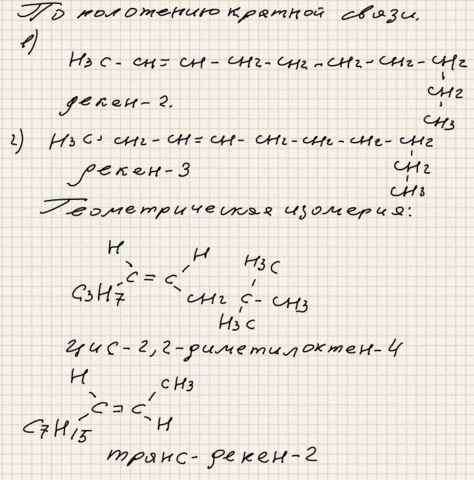 По положению кратной связи.
1)
H3C - CH = CH - CH2 - CH2 - CH2 - CH2 - CH2
CH2
CH3
декен-2.
2) H3C - CH2 - CH = CH - CH2 - CH2 - CH2 - CH2
CH2
CH3
декен-3
Геометрическая изомерия:
H H
C = C H3C
C3H7 CH2 C - CH3
H3C
цис-2,2-диметилоктен-4
H CH3
C = C
C7H15 H
транс-декен-2